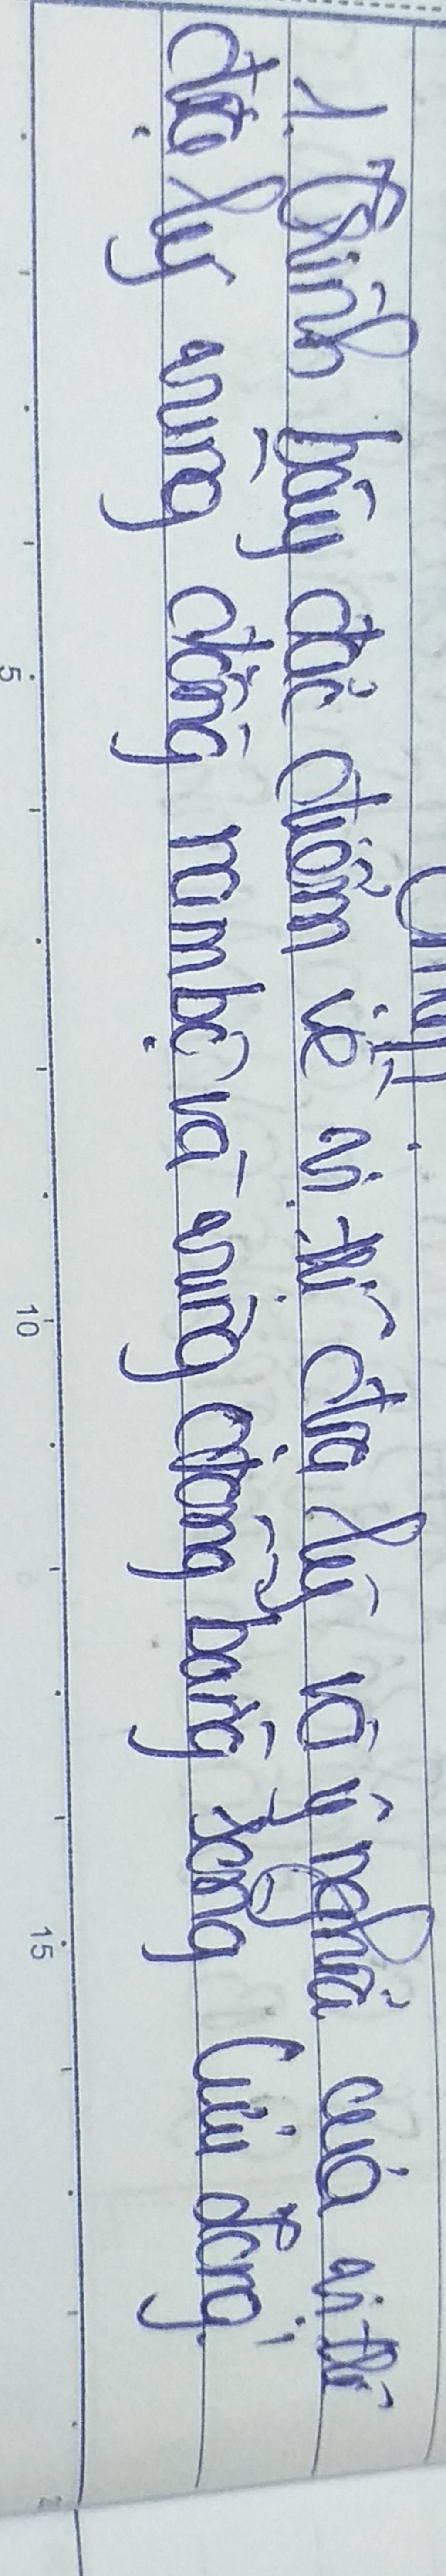 1. Trình bày đặc điểm về vị trí địa lý và ý nghĩa của vị trí
địa lý vùng đông nam bộ và vùng đồng bằng sông Cửu Long.
5 10 15